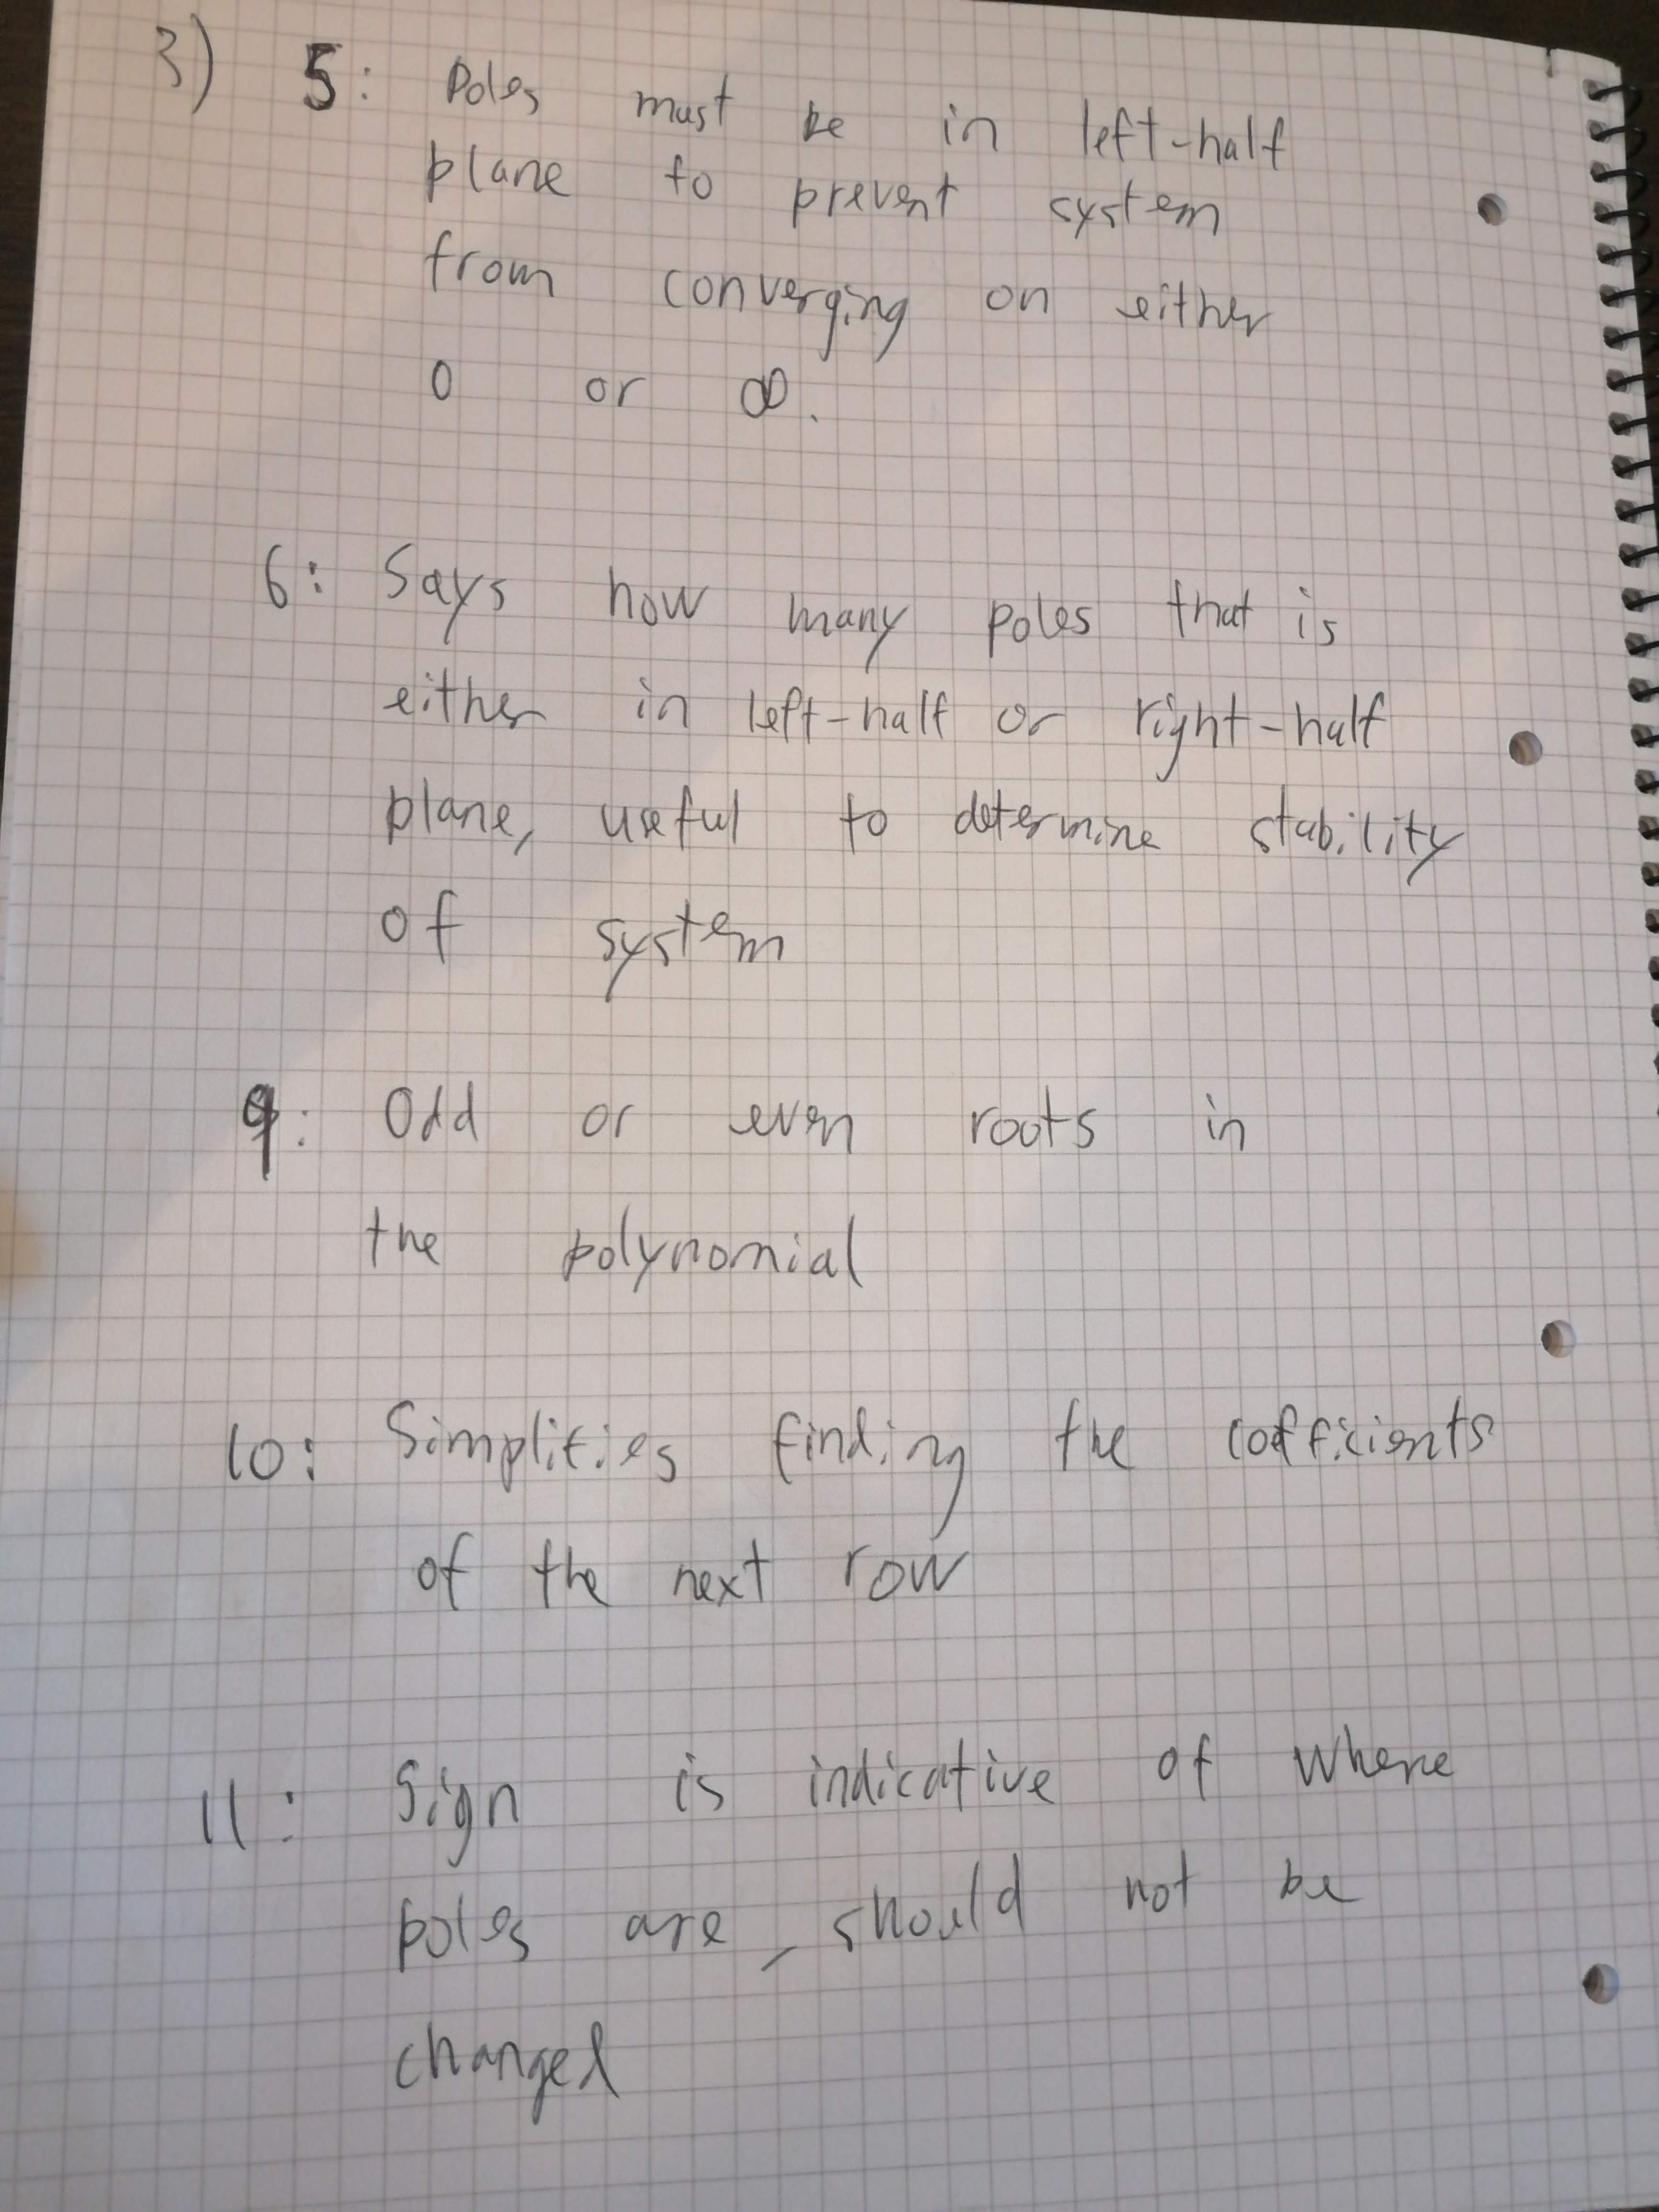 3) 5: Poles must be in left-half
plane to prevent system
from converging on either
0 or ∞.
6: Says how many poles that is
either in left-half or right-half
plane, useful to determine stability
of system
9: Odd or even roots in
the polynomial
10: Simplifies finding the cofficients
of the next row
11: Sign is indicative of where
poles are, should not be
changed